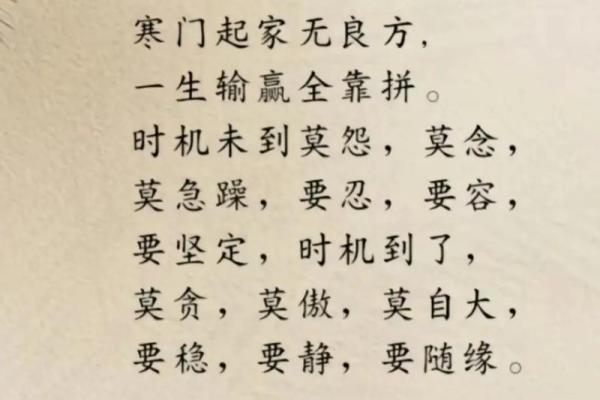 寒门起家无良方,
一生输赢全靠拼。
时机未到莫怨，莫念，
莫急躁，要忍，要容，
要坚定，时机到了，
莫贪，莫傲，莫自大，
要稳，要静，要随缘。